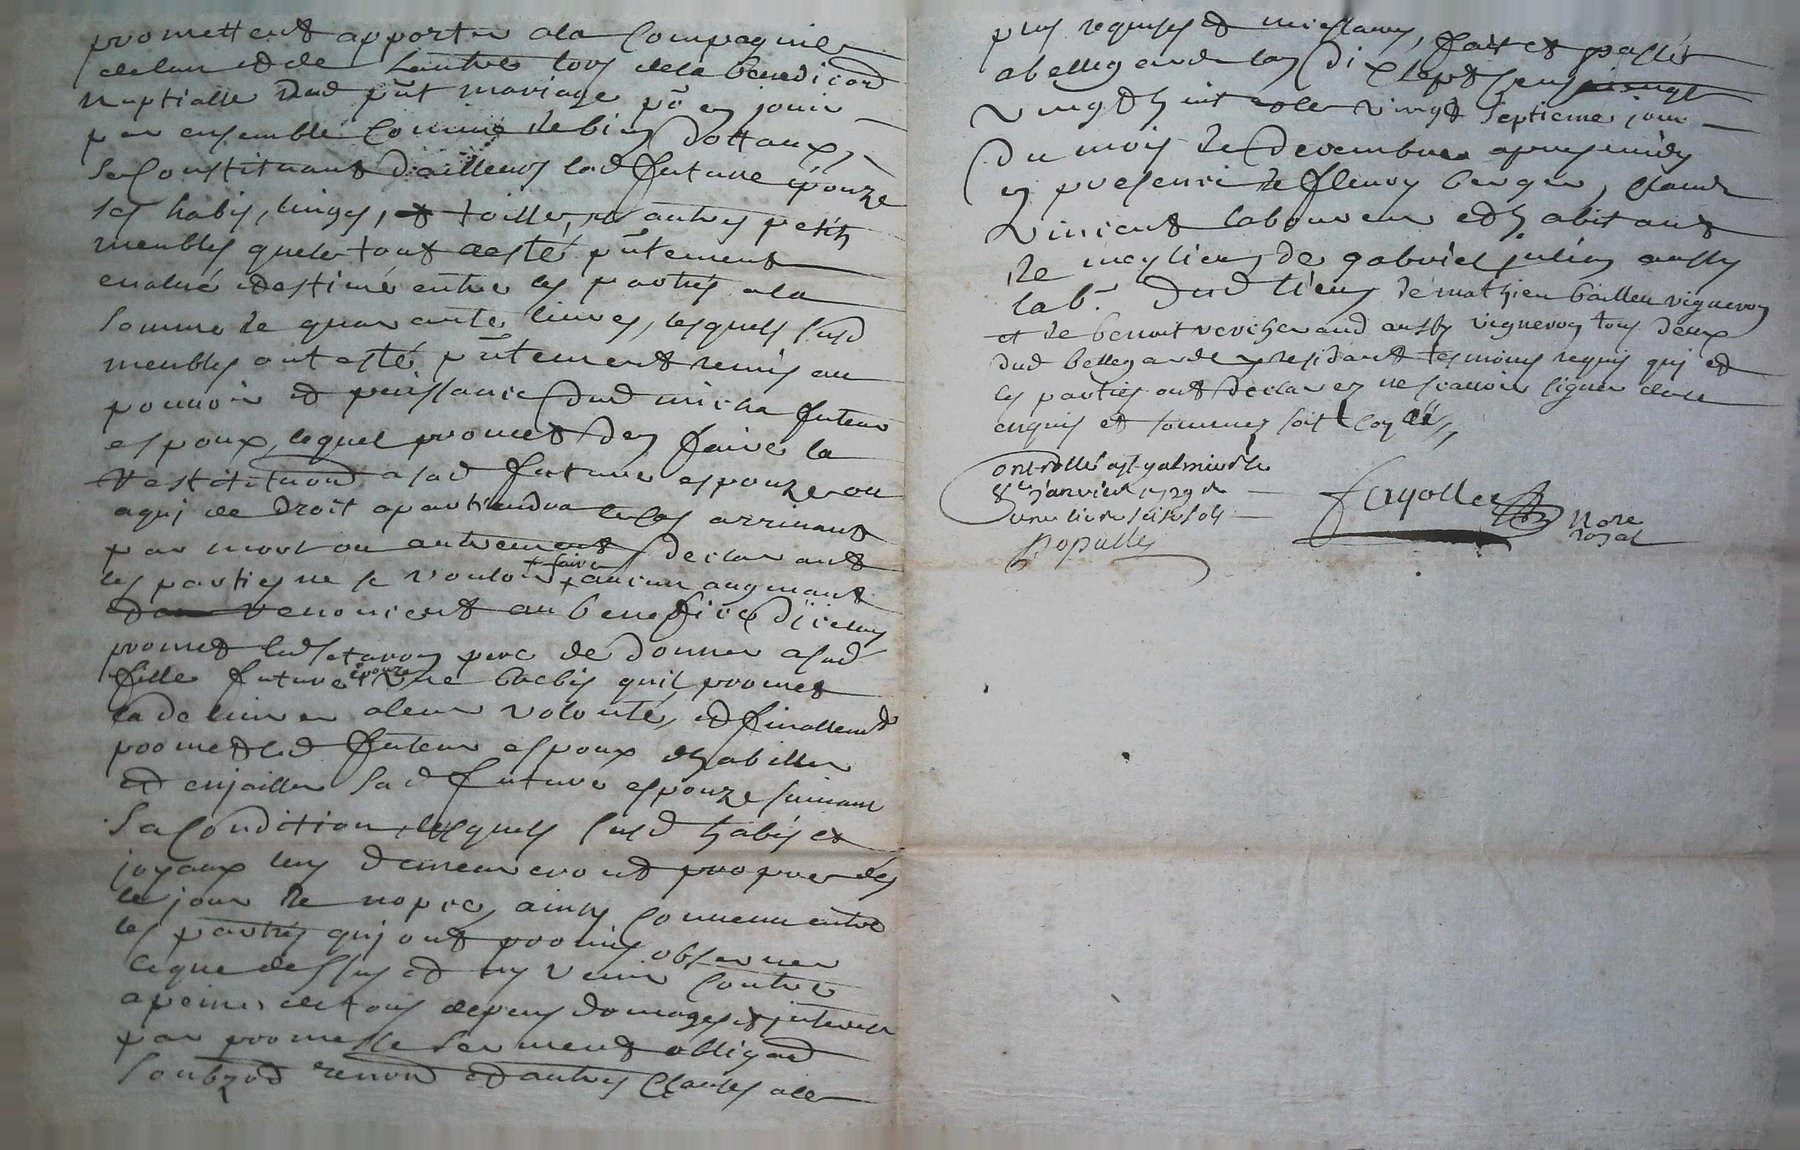 promettent apporter a la Compagnie
de lun et de lautre lors de la benedicon
nuptialle dud pnt mariage po en jouir
par ensemble Comme de bien dottaux,
se Constituant dailleurs lad future epouze
ses habis, linges, et toilles, et autres petits
meubles que le tout a esté pntement
evalué et estimé entre les parties a la
somme de quarante livres, lesquels susd
meubles ont esté pntement remis au
pouvoir et puissance dud micha futeur
espoux, lequel promet den faire la
restitution a sad future espouze ou
a quj de droit apartiendra le cas arrivant
par mort ou autrement declarant
les parties ne se vouloir faire aucun augmant
renoncient au benefice diceluy
promet led pere de donner a sad
fille future épouze une brebis quil promet
la delivrer a leur volonté, et finallemt
promet led futeur espoux dhabiller
et enjailler sad future espouze suivant
sa Condition, lesquels susd habis et
joyaux luy demeureront propres dés
le jour de nopce, ainsy Convenu entre
les parties quj ont promis observer
ce que dessus et ny venir Contre
a peine de tous depens domages et jnterest
par promesse serment obligaon
soubzon renon et autres Clauses a le
plus requises et necessaires, fait et passé
a bellegarde lan Dix sept Cens
vingt huit et le vingt septieme jour
du mois de decembre apres midy
en presence de fleury berger, Claude
vincent laboureur et habitant
de meylieu, de gabriel julien aussy
labr dud lieu, de mathieu bailleu vigneron
et de benoit vercherand aussy vigneron tous deux
dud bellegarde y residant tesmoins requis quj et
les parties ont declarez ne scavoir signer de ce
enquis et sommez soit Coné
Controllé a st galmier le
8e janvier 1729 r
une livre seize sols
popalle
fayolle
Nore
royal